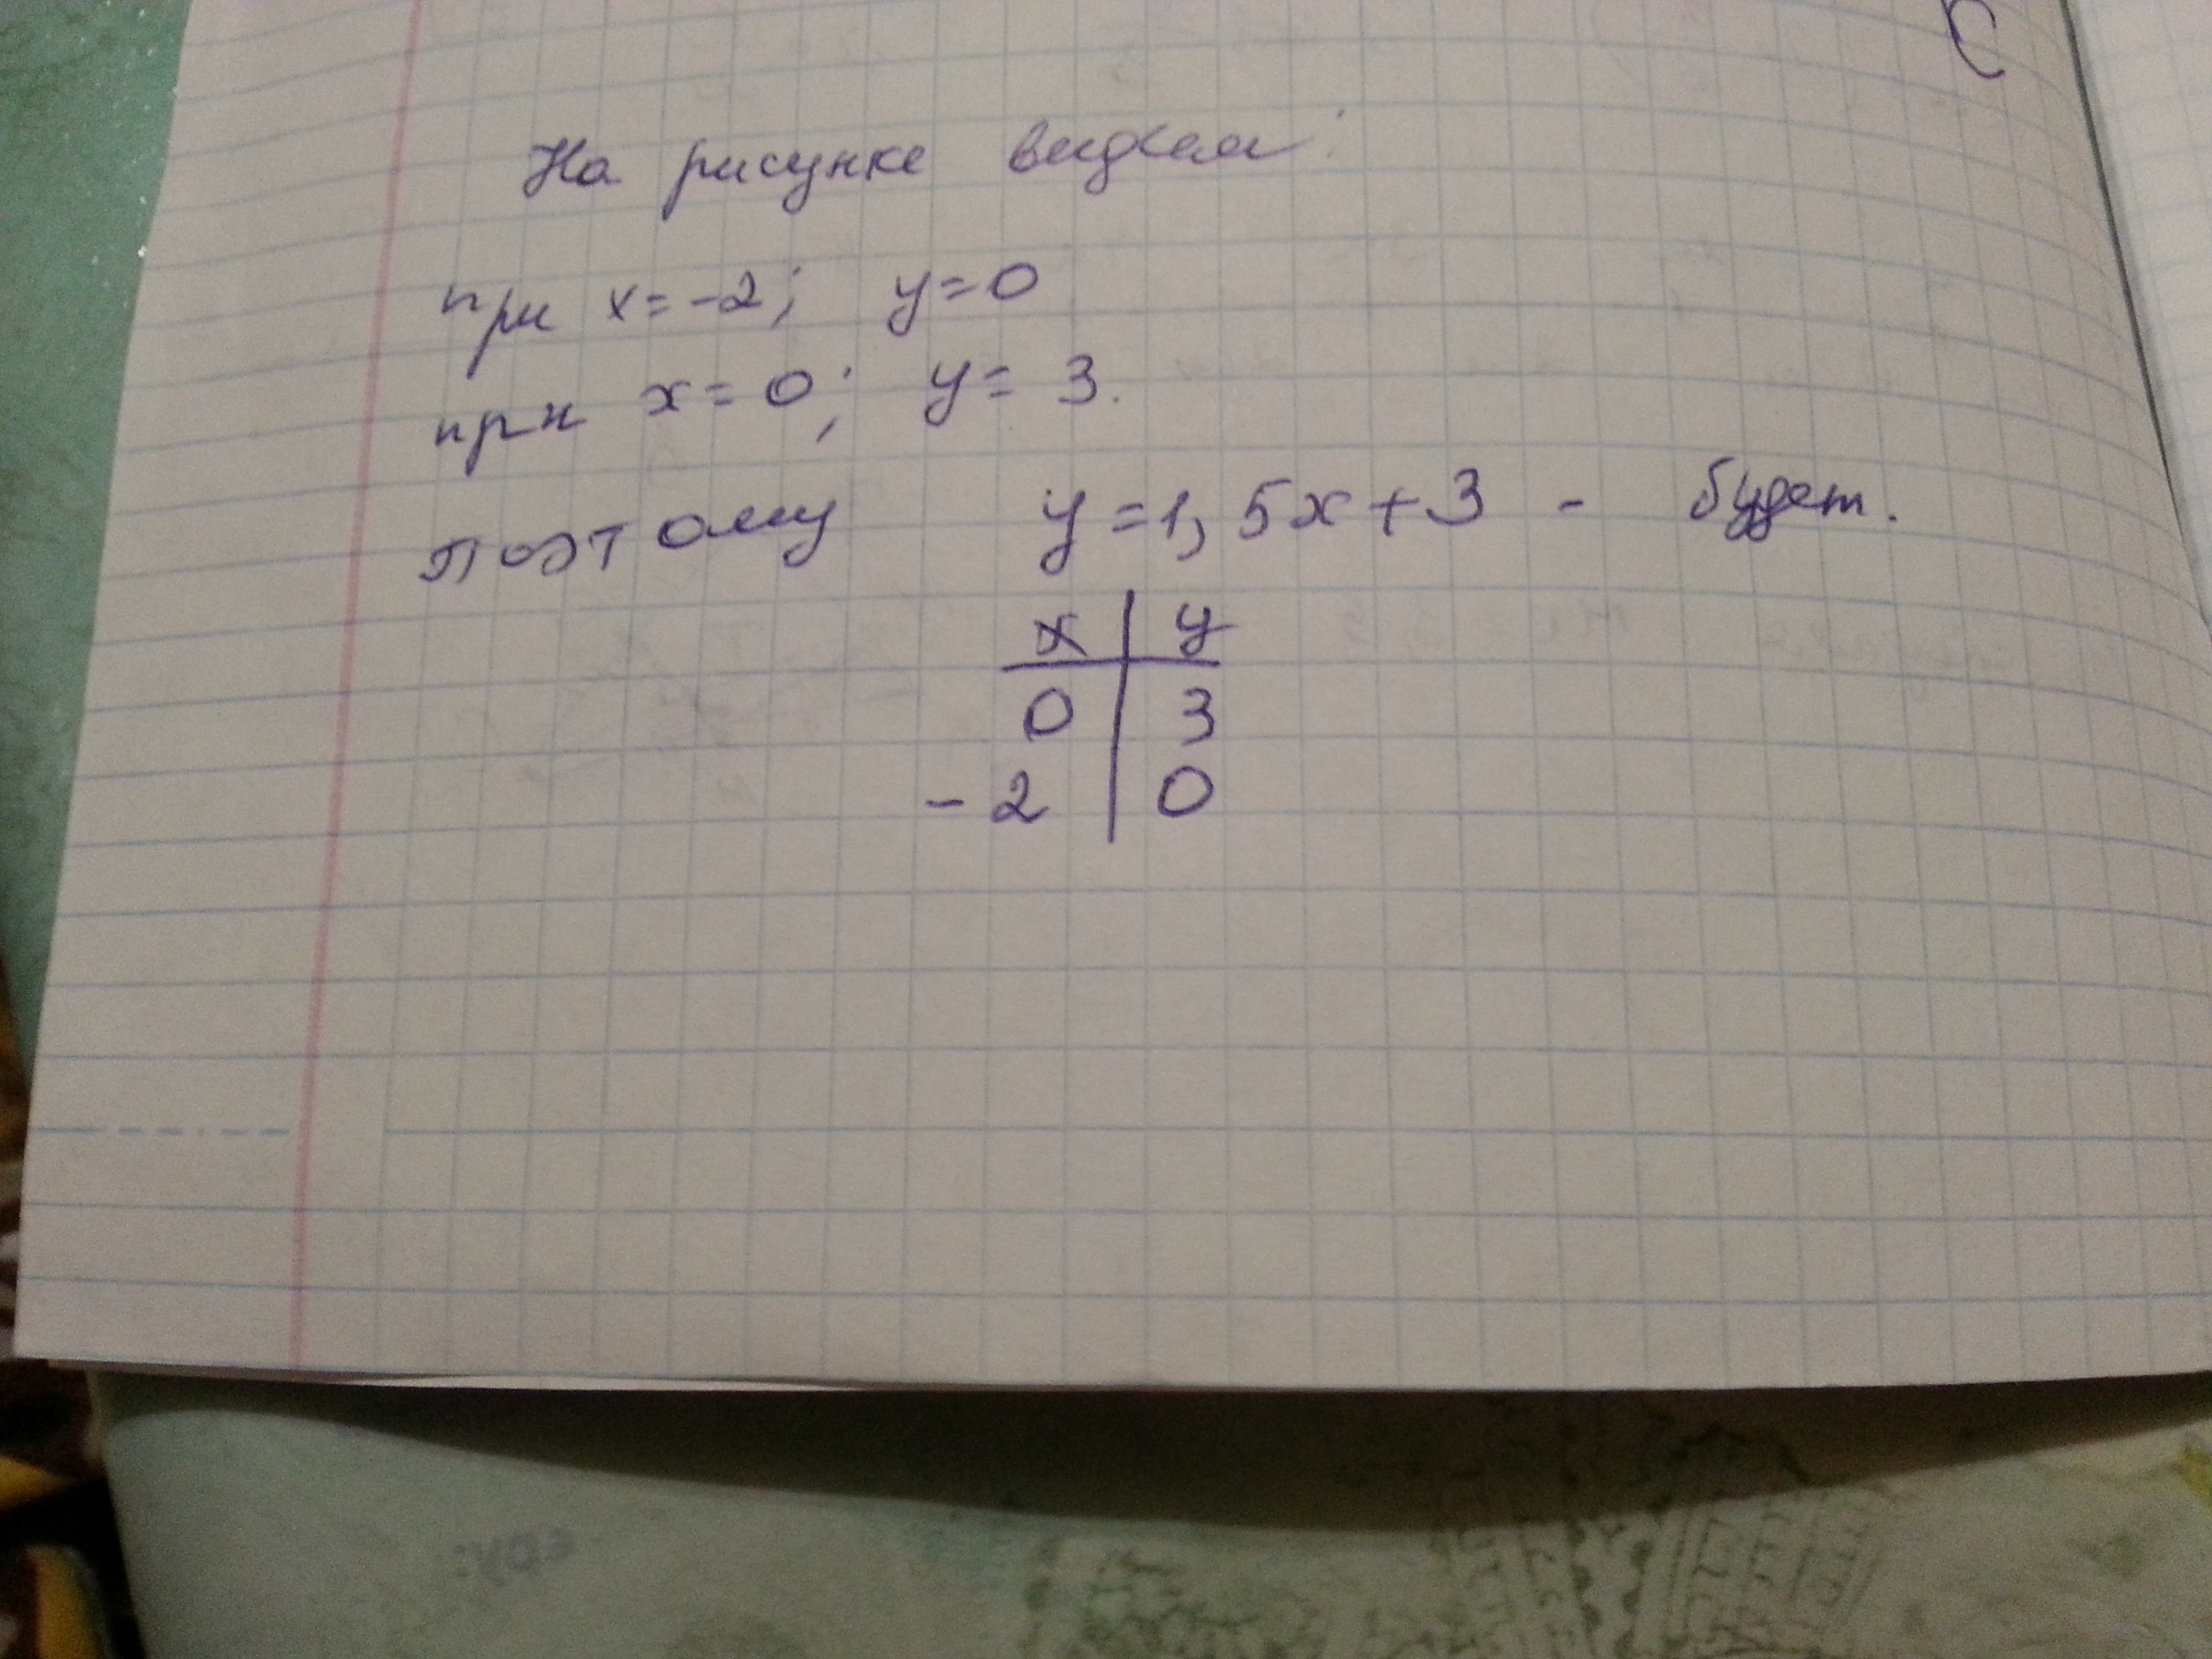 На рисунке видем:
при x=-2; y=0
при x=0; y=3.
Поэтому y=1,5x+3 - будет.
x | y
0 | 3
-2 | 0